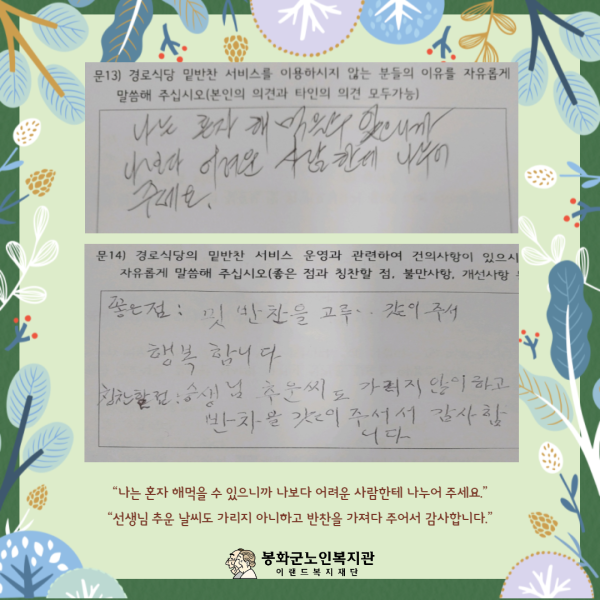 문13) 경로식당 밑반찬 서비스를 이용하시지 않는 분들의 이유를 자유롭게
말씀해 주십시오(본인의 의견과 타인의 의견 모두가능)
나는 혼자 해 먹을수 있으니까
나보다 어려운 사람한테 나누어
주세요.
문14) 경로식당의 밑반찬 서비스 운영과 관련하여 건의사항이 있으시
자유롭게 말씀해 주십시오(좋은 점과 칭찬할 점, 불만사항, 개선사항
좋은점: 밋 반찬을 고루.. 갓이 주서
행복 합니다
칭찬할점: 승생님 추운씨도 가리지 안이하고
반차을 갓이 주서서 감사함
니다
“나는 혼자 해먹을 수 있으니까 나보다 어려운 사람한테 나누어 주세요.”
“선생님 추운 날씨도 가리지 아니하고 반찬을 가져다 주어서 감사합니다.”
봉화군노인복지관
이랜드복지재단